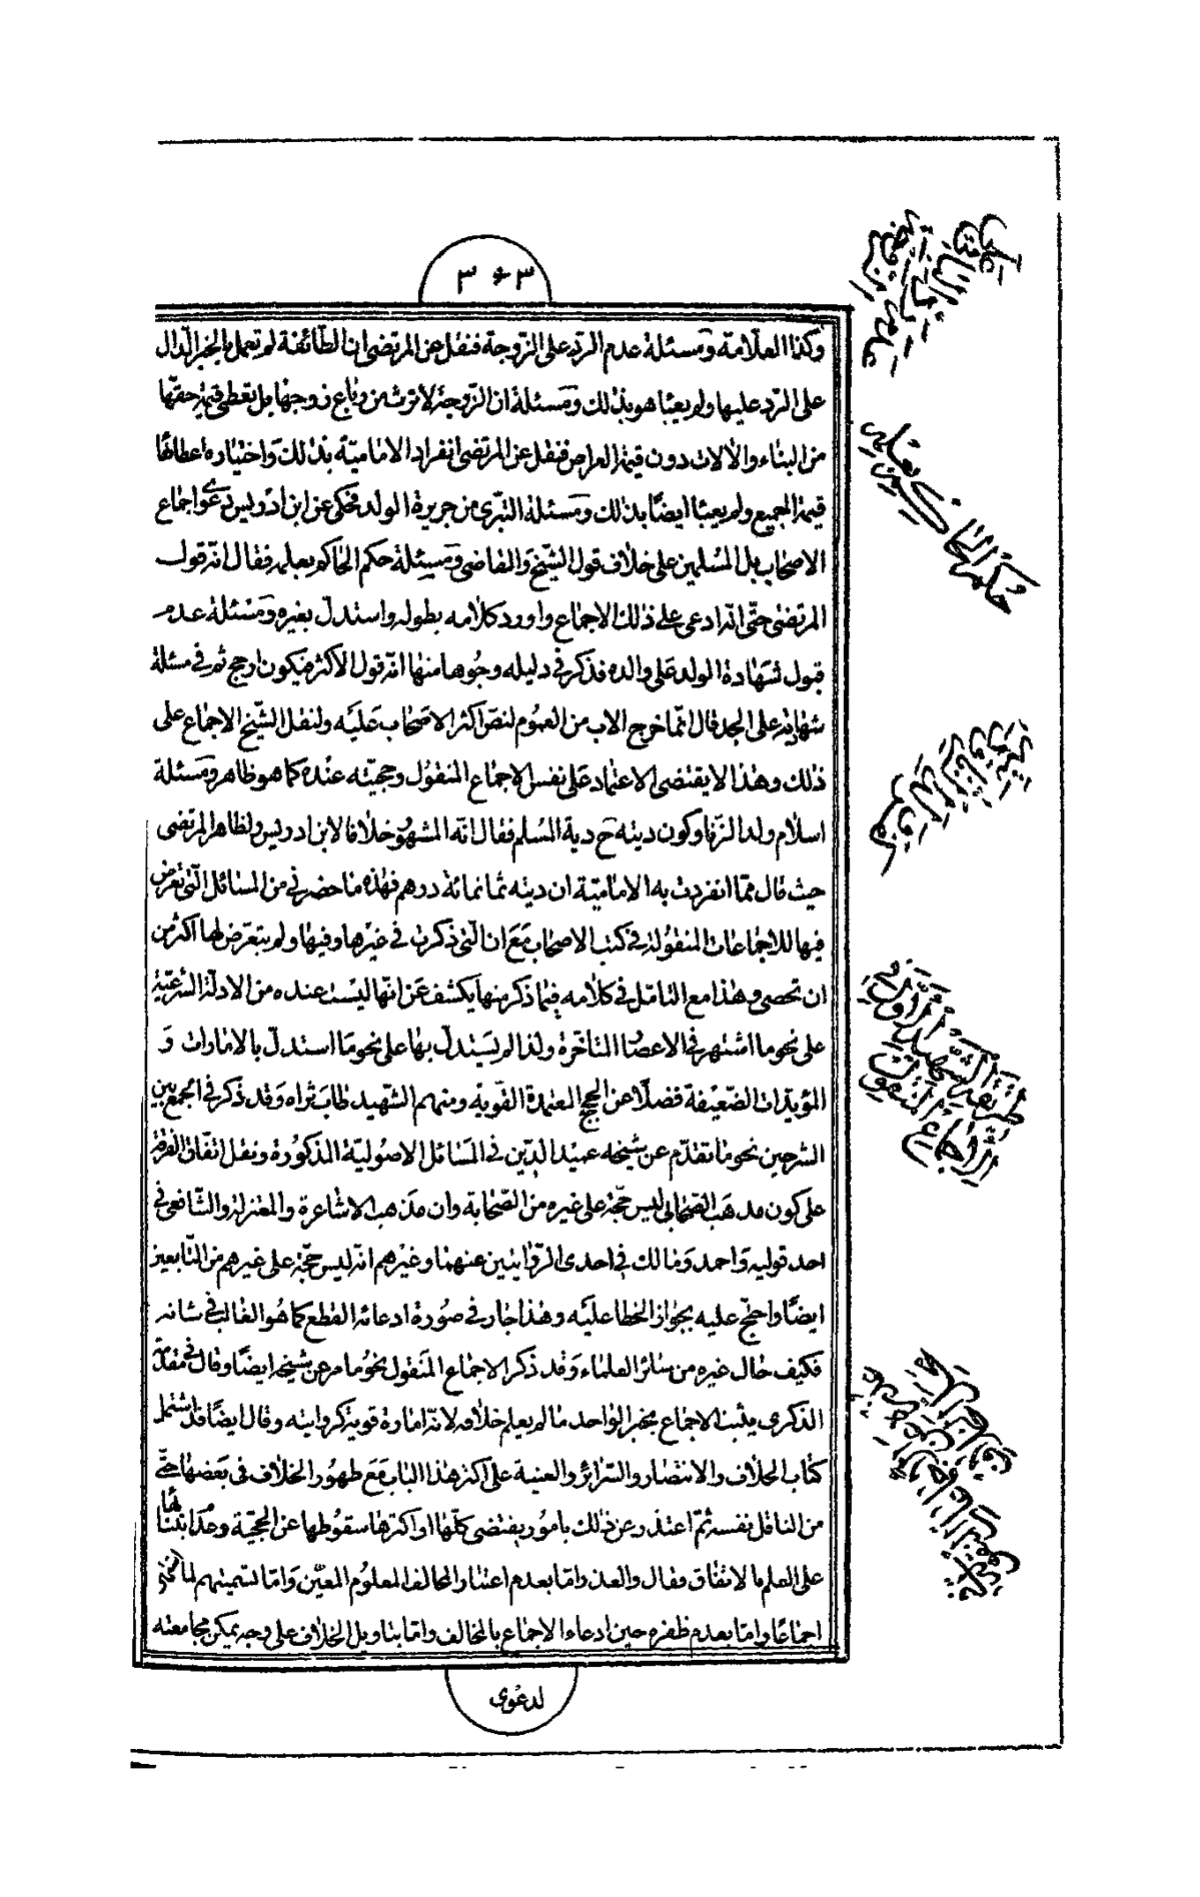 ٣٤٣
وكذا العلّامة ومسئلة عدم الردّ على الزّوجة فنقل عن المرتضى ان الطّائفة لم تعمل بالخبر الدّال
على الرّد عليها ولم يعبا هو بذلك ومسئلة ان الزّوجة لا ترث من رباع زوجها بل تعطى قيمة حقّها
من البناء والآلات دون قيمة العراص فنقل عن المرتضى انفراد الاماميّة بذلك واختياره اعطائها
قيمة الجميع ولم يعبا ايضًا بذلك ومسئلة التبرّى من جريرة الولد فحكى عن ابن ادريس دعوى اجماع
الاصحاب بل المسلمين على خلاف قول الشّيخ والقاضى ومسئلة حكم الحاكم بعلمه فقال انّه قول
المرتضى حتّى انّه ادعى على ذلك الاجماع واورد كلامه بطوله واستدلّ بغيره ومسئلة عدم
قبول شهادة الولد على والده فذكر فى دليله وجوها منها انّه قول الاكثر فيكون ارجح ثم فى مسئلة
شهادته على الجد قال انّما خرج الاب من العموم لنصّ اكثر الاصحاب عليه ولنقل الشّيخ الاجماع على
ذلك وهذا لا يقتضى الاعتماد على نفس الاجماع المنقول وحجيّته عنده كما هو ظاهر ومسئلة
اسلام ولد الزّنا وكون ديته ح دية المسلم فقال انّه المشهور خلافا لابن ادريس ولظاهر المرتضى
حيث قال ممّا انفردت به الاماميّة ان ديته ثمانمائة درهم فهذه ما حضرنى من المسائل الّتى تعرض
فيها للاجماعات المنقولة فى كتب الاصحاب مع ان الّتى ذكرت فى غيرها وفيها ولم يتعرّض لها اكثر من
ان تحصى وهذا مع التامّل فى كلامه فيما ذكر منها يكشف عن انّها ليست عنده من الادلّة الشّرعيّة
على نحو ما اشتهر فى الاعصار المتاخّرة ولذا لم يستدلّ بها على نحو ما استدلّ بالامارات و
المؤيّدات الضّعيفة فضلًا عن الحجج المعتمدة القويّة ومنهم الشّهيد طاب ثراه وقد ذكر فى الجمع بين
الشرحين نحو ما تقدّم عن شيخه عميد الدّين فى المسائل الاصوليّة المذكورة ونقل اتّفاق الفرقة
على كون مذهب الصّحابى ليس حجّة على غيره من الصّحابة وان مذهب الاشاعرة والمعتزلة والشّافعى فى
احد قوليه واحمد ومالك فى احدى الرّوايتين عنهما وغيرهم انّه ليس حجّة على غيرهم من التّابعين
ايضًا واحتجّ عليه بجواز الخطا عليه وهذا جار فى صورة ادعائه القطع كما هو الغالب فى شانه
فكيف حال غيره من سائر العلماء وقد ذكر الاجماع المنقول نحو ما مر عن شيخه ايضًا وقال فى مقدّمة
الذكرى يثبت الاجماع بخبر الواحد ما لم يعلم خلافه لانّه امارة قوية كروايته وقال ايضًا قد اشتمل
كتاب الخلاف والانتصار والسّرائر والغنية على اكثر هذا الباب مع ظهور الخلاف فى بعضها حتّى
من الناقل نفسه ثمّ اعتذر عن ذلك بامور يقتضى كلّها او اكثرها سقوطها عن الحجّية
على العلم بالاتفاق فقال والعذر امّا بعدم اعتبار المخالف المعلوم المعيّن وامّا تسميتهم لما اشتهر
اجماعًا وامّا بعدم ظفره حين ادعاء الاجماع بالمخالف وامّا بتاويل الخلاف على وجه يمكن مجامعته
لدعوى
حكم الحاكم بعلمه
طريقة الشّهيد الاوّل فى
الاجماع المنقول